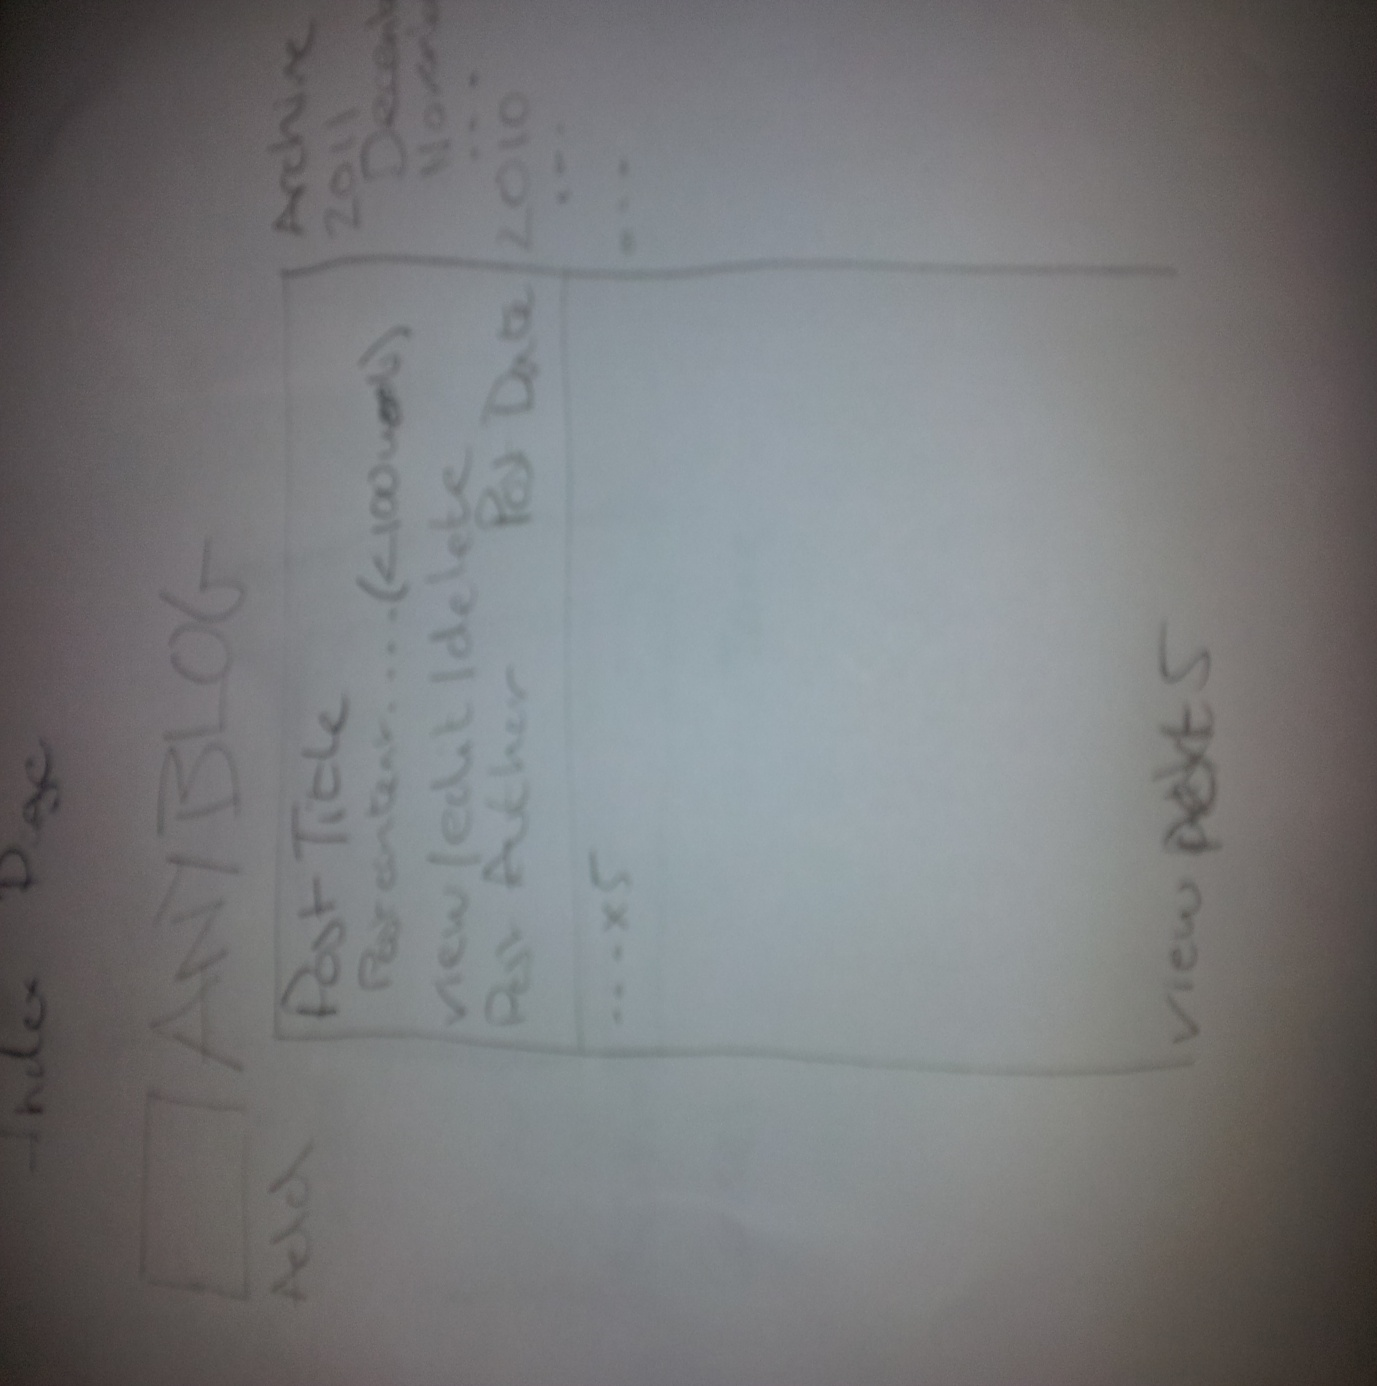 Index Page
ANYBLOG
Add
Post Title
Post content.....(<100words)
view/edit/delete
Post Author Post Date
....x5
view next 5
Archive
2011
...
2010
...
...